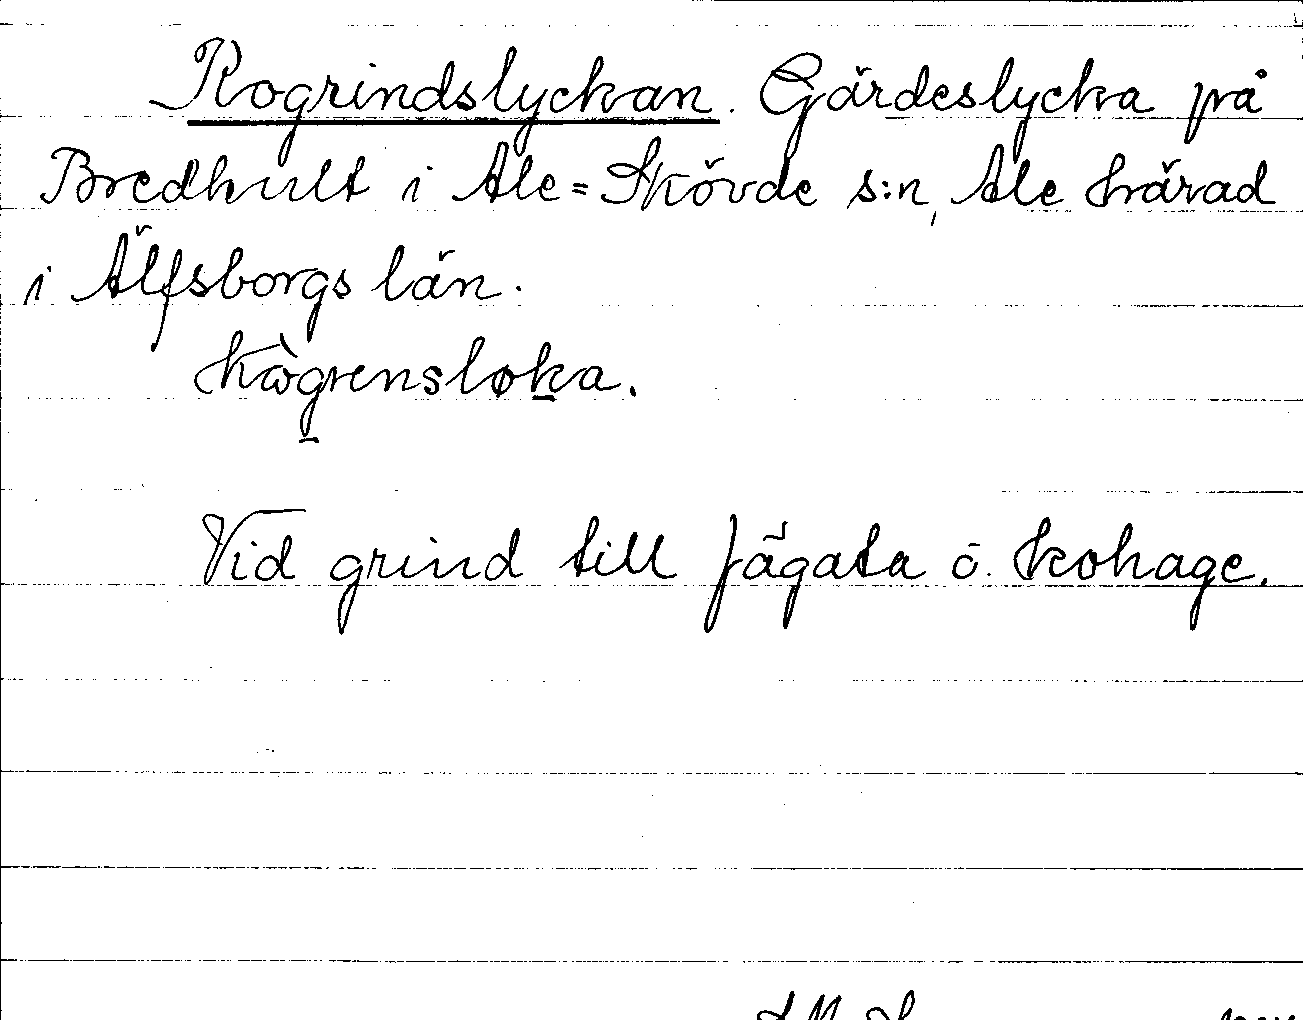 Kogrindslyckan. Gärdeslycka på
Bredhult i Ale=Skövde s:n, Ale härad
i Älfsborgs län.
kògrensloka.
Vid grind till fägata o. kohage.